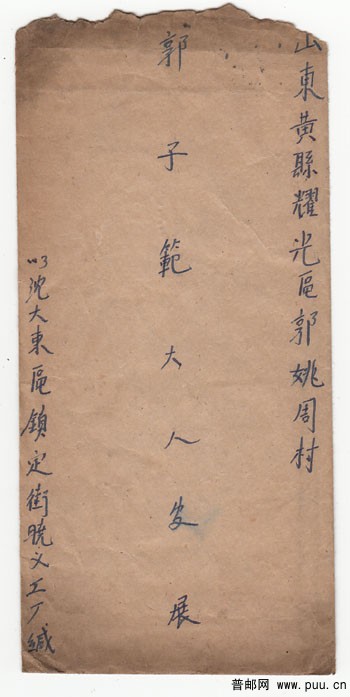 山東黃縣耀光區郭姚周村
郭子範大人安展
沈大東區定街工厂緘
普邮网 www.puu.cn